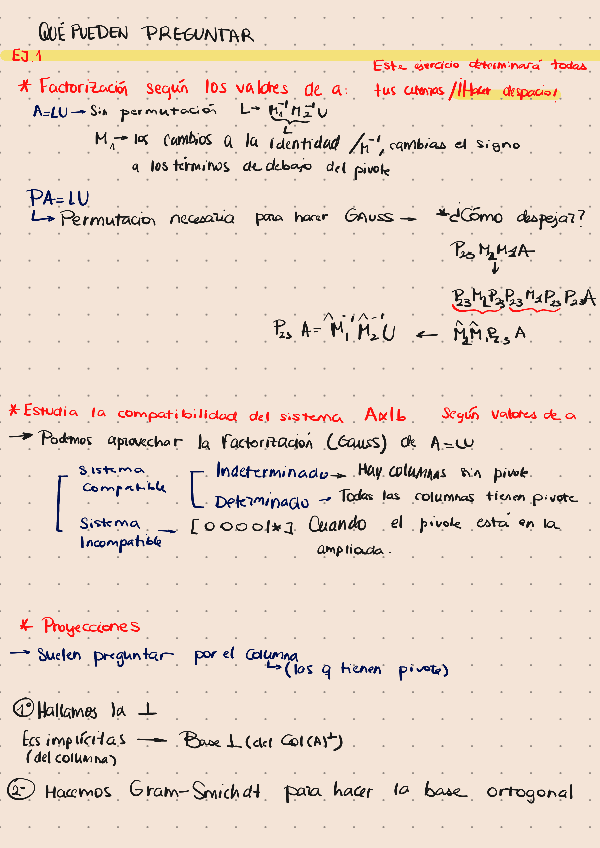 QUÉ PUEDEN PREGUNTAR
EJ.1
Este ejercicio determinará todas
* Factorización según los valores de a: tus cuentas /¡¡Hacer despacio!
A=LU → Sin permutación L→ M₁⁻¹ M₂⁻¹ U
L
M₁→ los cambios a la identidad / M⁻¹, cambias el signo
a los términos de debajo del pivote
PA=LU
↳ Permutación necesaria para hacer GAUSS → *¿Cómo despejar?
P₂₃ M₂ M₁ A
↓
P₂₃ M₂ P₂₃ P₂₃ M₁ P₂₃ P₂₃ A
P₂₃ A = M̂₁⁻¹ M̂₂⁻¹ U ← M̂₂ M̂₁ P₂₃ A
* Estudia la compatibilidad del sistema Ax|b Según valores de a
→ Podmos aprovechar la Factorización (Gauss) de A=LU
Sistema Compatible
Indeterminado → Hay columnas sin pivote.
Determinado → Todas las columnas tienen pivote
Sistema Incompatible → [0 0 0 0 | *]. Cuando el pivote está en la
ampliada.
* Proyecciones
→ Suelen preguntar por el columna
↳ (los q tienen pivote)
①° Hallamos la ⊥
Ecs implícitas → Base ⊥ (del Col(A)⊥)
(del columna)
②- Hacemos Gram-Smichdt para hacer la base ortogonal